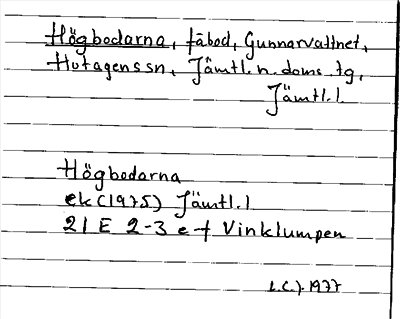 Högbodarna, fäbod, Gunnarvattnet,
Hotagens sn, Jämtl. n. doms. tg,
Jämtl. l.
Högbodarna
ek (1975) Jämtl. l
21 E 2-3 e-f Vinklumpen
1977